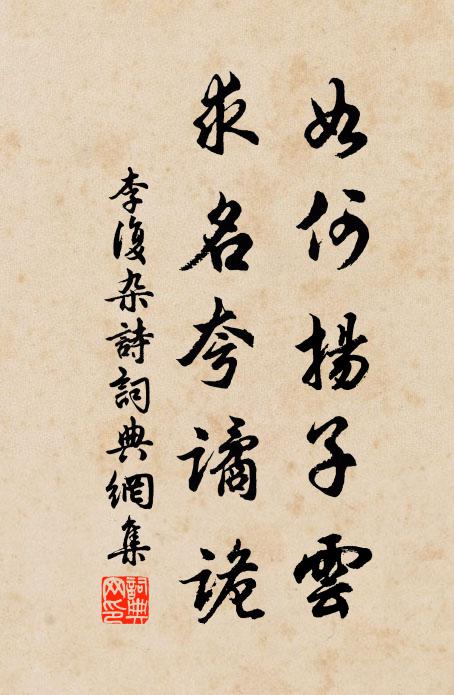 如何揚子雲
求名夸譎詭
李復杂詩詞典網集
詞典網印